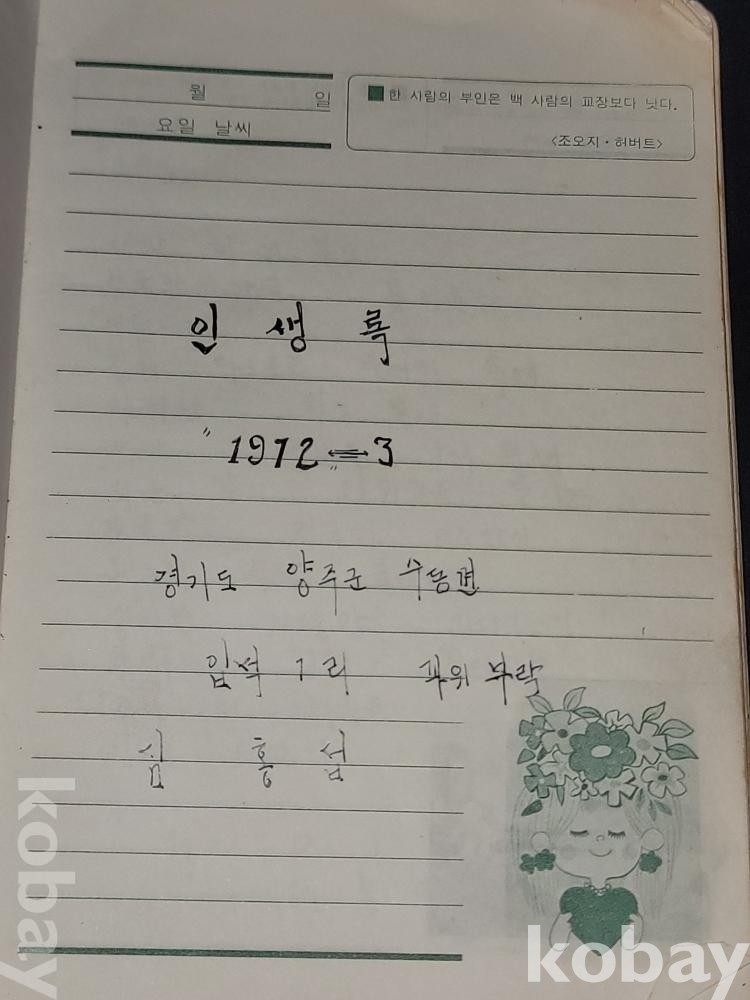 월 일
요일 날씨
■한 사람의 부인은 백 사람의 교장보다 낫다.
<조오지·허버트>
인생록
" 1972 ⟺ 3 "
경기도 양주군 수동면
입석 1 리 바위 부락
심 흥 섭
kobay
kobay